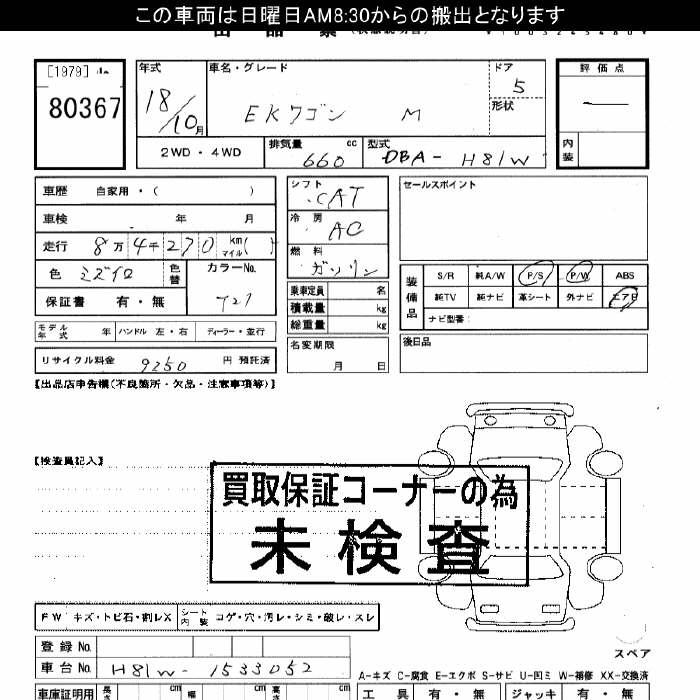 この車両は日曜日AM8:30からの搬出となります
[1979]
80367
年式
18/10月
車名・グレード
EKワゴン M
ドア
5
形状
評価点
内装
2WD・4WD
排気量 660 cc
型式 DBA-H81W
車歴 自家用・( )
車検 年 月
走行 8万4千270 km マイル( )
色 ミズイロ 色替
カラーNo. T27
保証書 有・無
シフト CAT
冷房 AC
燃料 ガソリン
乗車定員 名
積載量 kg
総重量 kg
セールスポイント
装備品
S/R 純A/W P/S P/W ABS
純TV 純ナビ 革シート 外ナビ エアB
ナビ型番:
モデル年式 年 ハンドル 左・右 ディーラー・並行
リサイクル料金 9250 円 預託済
名変期限 月 日
後日品
【出品店申告欄(不良箇所・欠品・注意事項等)】
【検査員記入】
買取保証コーナーの為
未検査
FW キズ・トビ石・割レX
シート内装 コゲ・穴・汚レ・シミ・破レ・スレ
スペア
登録No.
車台No. H81W-1533052
A-キズ C-腐食 E-エクボ S-サビ U-凹ミ W-補修 XX-交換済
車庫証明用 長さ cm 幅 cm 高さ cm
工具 有・無 ジャッキ 有・無